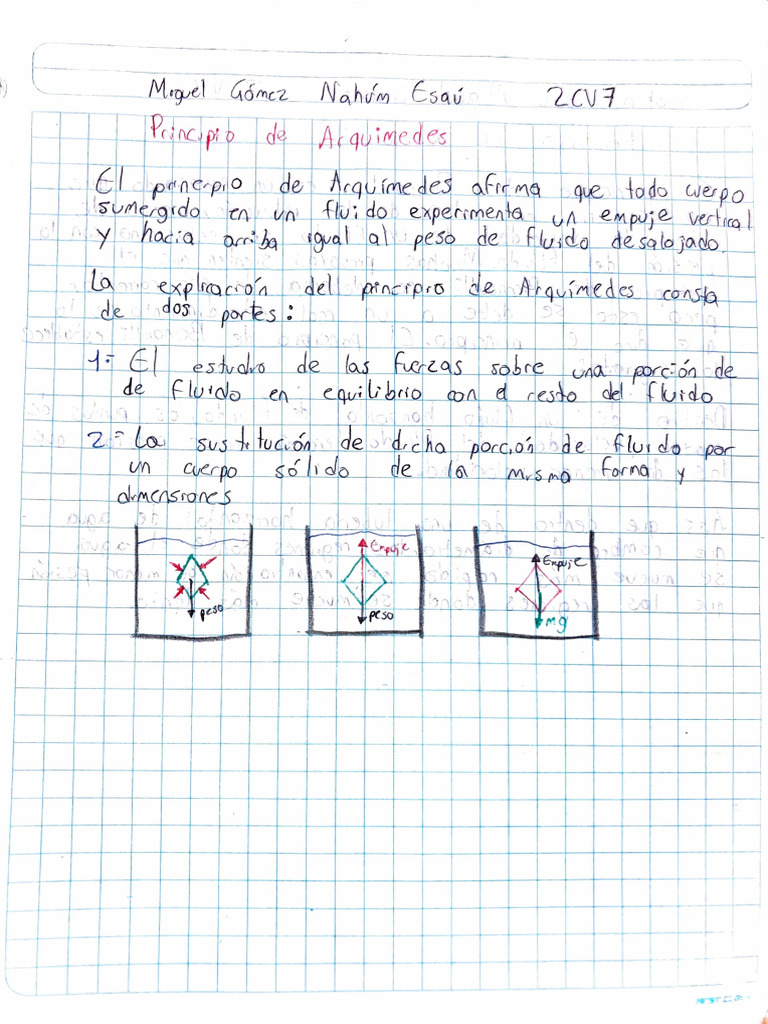 Miguel Gómez Nahúm Esaú 2CV7
Principio de Arquimedes
El principio de Arquímedes afirma que todo cuerpo
sumergido en un fluido experimenta un empuje vertical
y hacia arriba igual al peso de fluido desalojado.
La explicación dell principio de Arquímedes consta
de dos partes:
1.- El estudio de las fuerzas sobre una porción de
de fluido en equilibrio con el resto del fluido
2.- La sustitución de dicha porción de fluido por
un cuerpo sólido de la misma forma y
dimensiones
peso
Empuje
peso
Empuje
mg